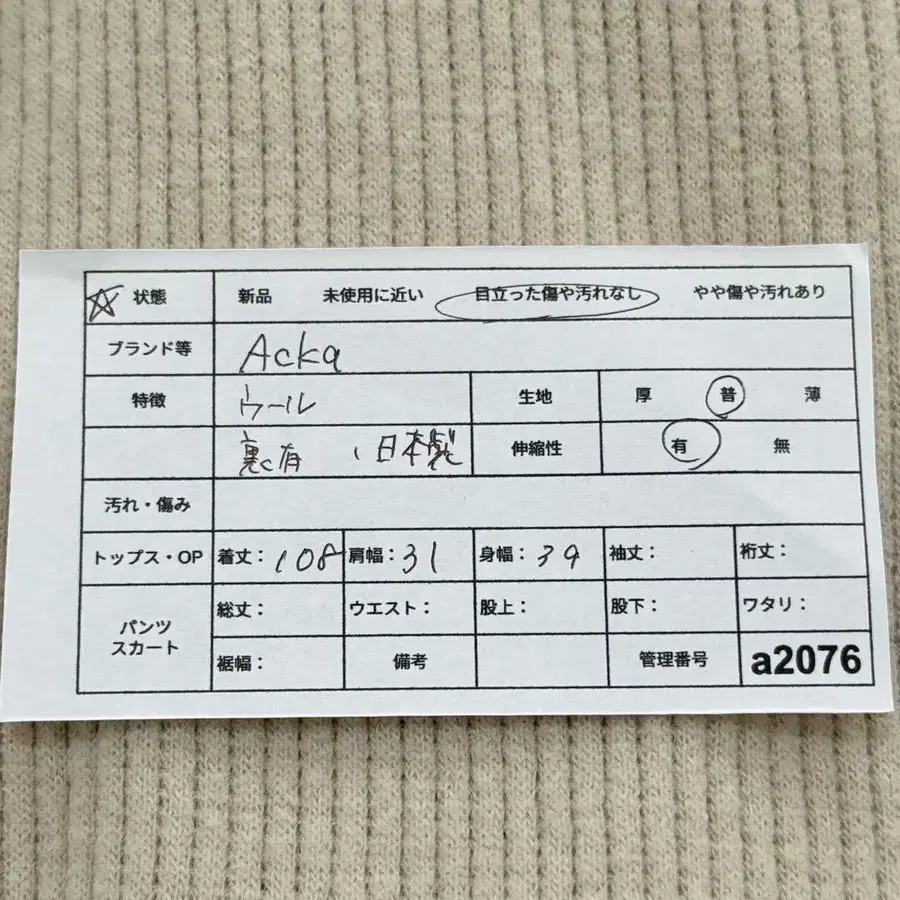 ☆ 状態 新品 未使用に近い 目立った傷や汚れなし やや傷や汚れあり
ブランド等 Acka
特徴 ウール 生地 厚 普 薄
裏有 、日本製 伸縮性 有 無
汚れ・傷み
トップス・OP 着丈：108 肩幅：31 身幅：39 袖丈： 裄丈：
パンツ スカート 総丈： ウエスト： 股上： 股下： ワタリ：
裾幅： 備考 管理番号 a2076